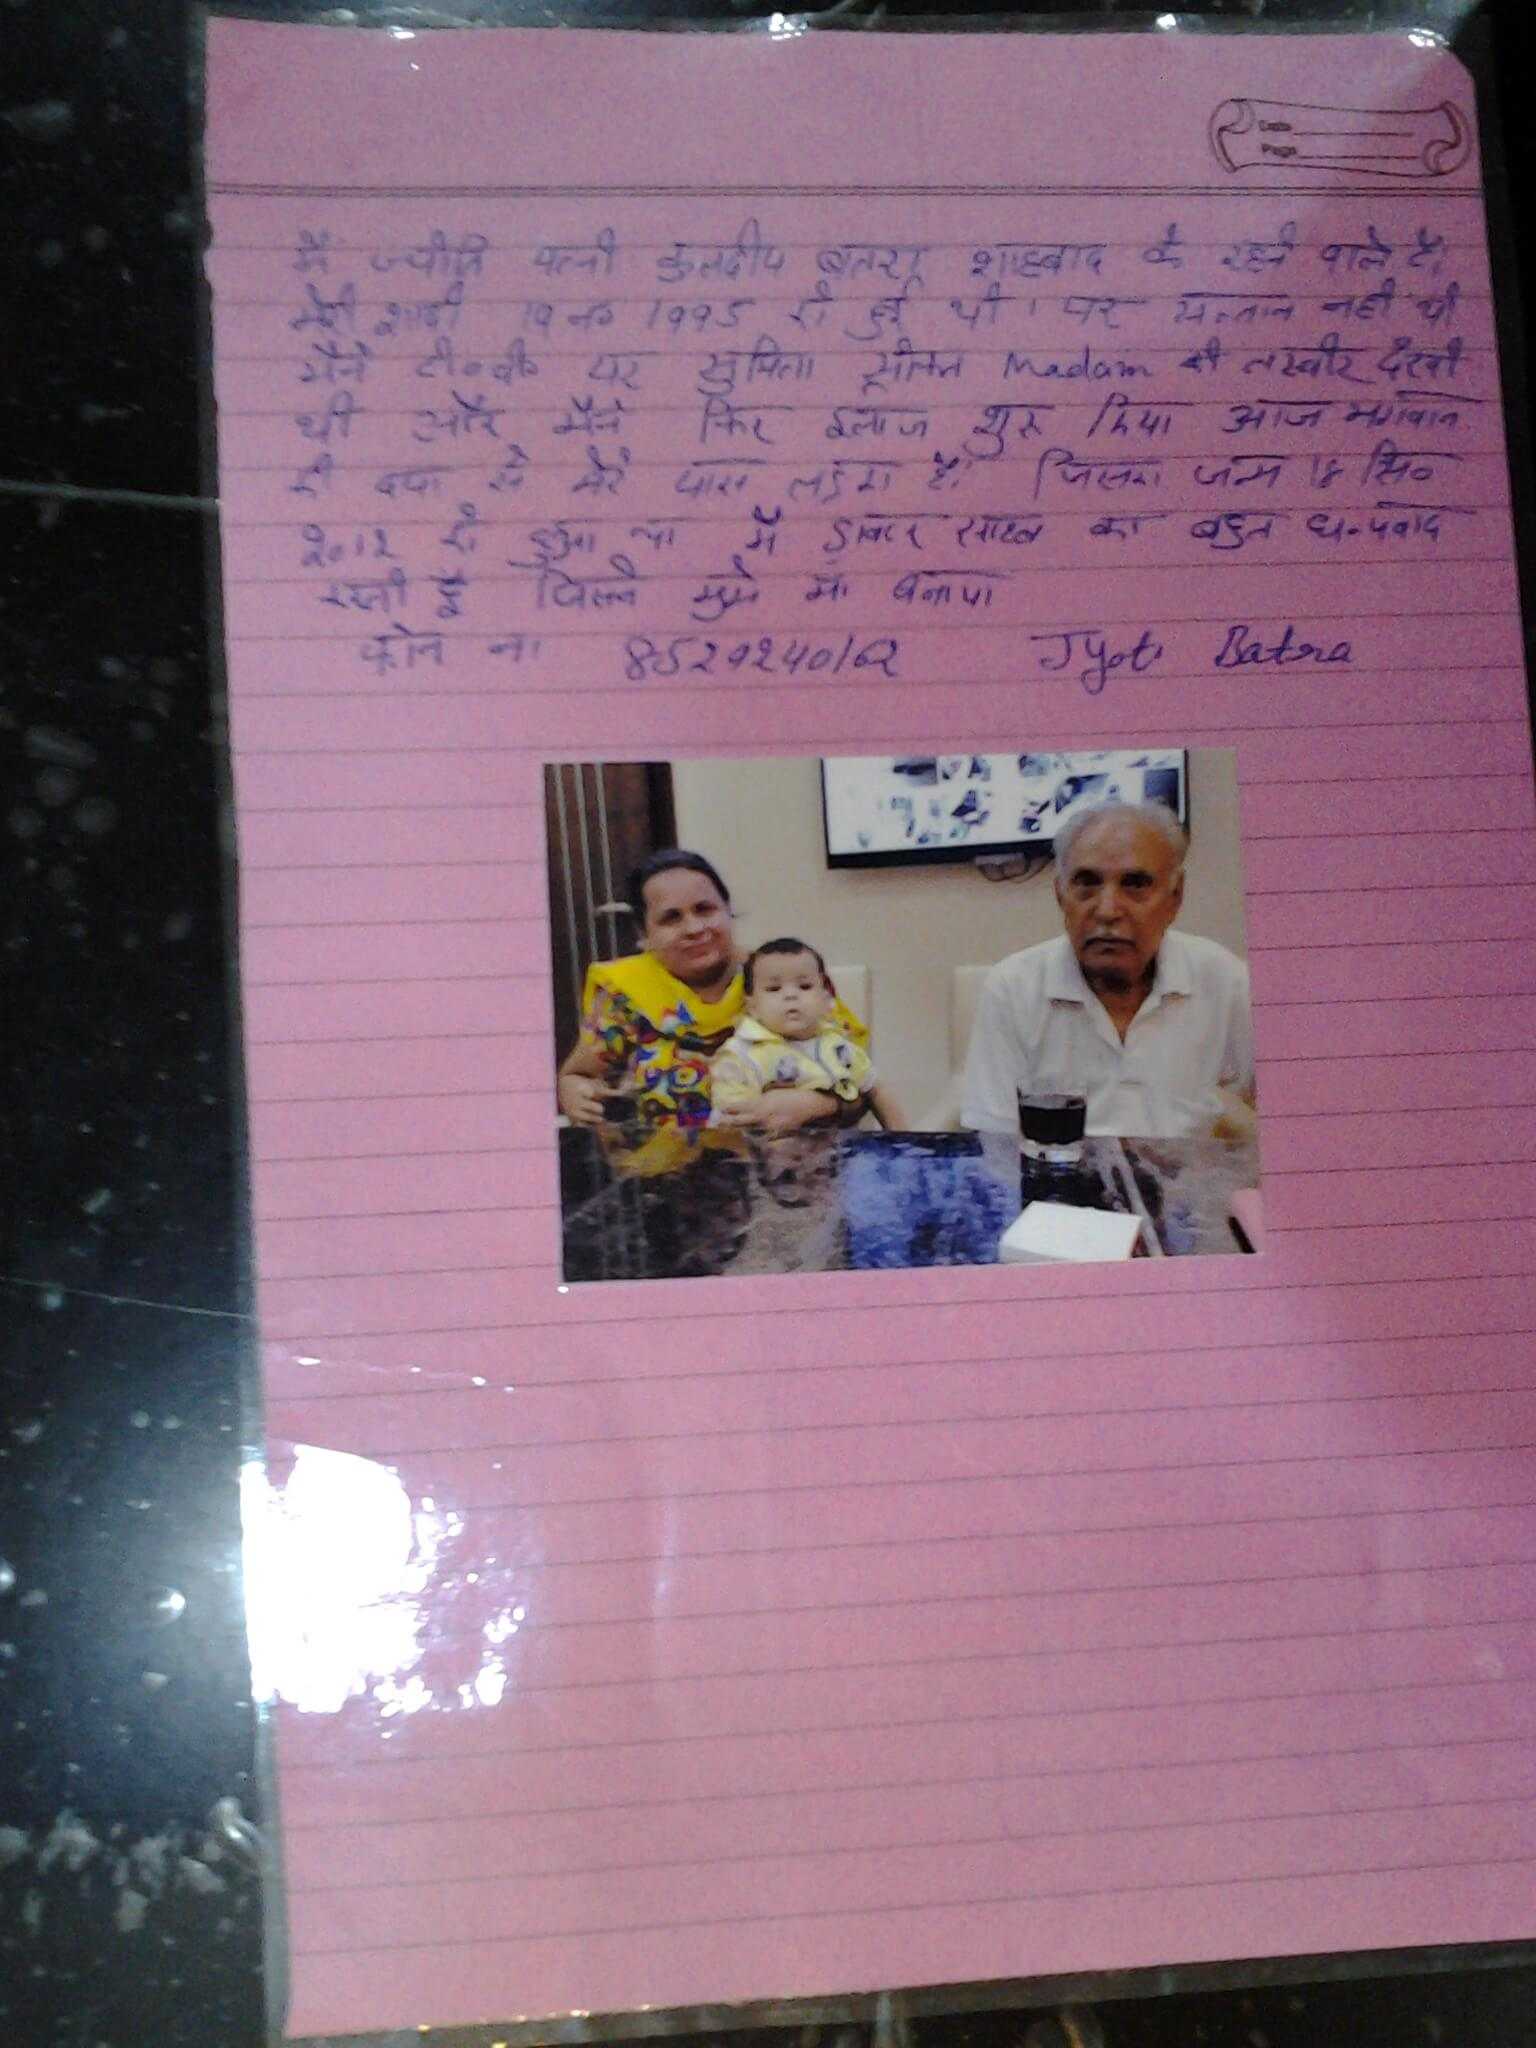 Date
Page
मैं ज्योति पत्नी कुलदीप बतरा शाहबाद के रहने वाले है।
मेरी शादी 19 नव 1995 को हुई थी । पर सन्तान नही थी
मैंने टी०वी० पर सुमिता Madam की तस्वीर देखी
थी और मैने फिर इलाज शुरू किया आज भगवान
की दया से मेरे पास लड़का है। जिसका जन्म 18 सि०
2012 को हुआ था मैं डाक्टर साहब का बहुत धन्यवाद
करती हूँ जिसने मुझे माँ बनाया
फोन न० 8529240162 Jyoti Batra